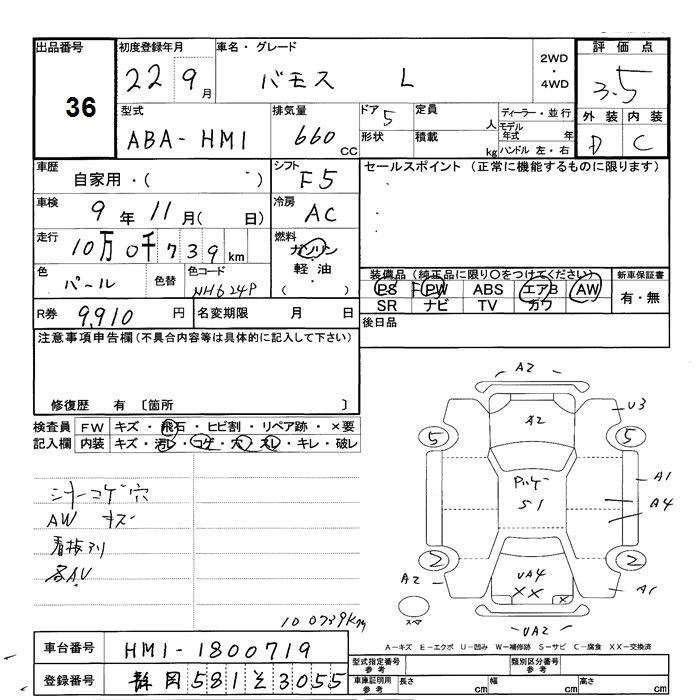 出品番号
36
初度登録年月
22 9月
車名・グレード
バモス L
2WD
・
4WD
評価点
3.5
外装 内装
D C
型式
ABA-HM1
排気量
660 CC
ドア 5
定員 人
形状
積載 kg
ディーラー・並行
モデル年式 年
ハンドル 左・右
車歴
自家用・( )
シフト
F5
セールスポイント (正常に機能するものに限ります)
車検
9年 11月( 日)
冷房
AC
走行
10万0千739km
燃料
ガソリン
軽油
( )
色
パール
色替
色コード
NH624P
装備品 (純正品に限り○をつけてください)
PS PW ABS エアB AW
SR ナビ TV カワ
新車保証書
有・無
R券 9,910 円
名変期限 月 日
後日品
注意事項申告欄(不具合内容等は具体的に記入して下さい)
修復歴 有 〔箇所 〕
検査員 FW キズ・飛石・ヒビ割・リペア跡・×要
記入欄 内装 キズ・汚レ・コゲ・穴・スレ・キレ・破レ
シートコゲ穴
AW キズ
看抜アリ
各AU
100739km
A2
A2
U3
5
5
A1
A4
S1
2
2
A2
UA4
XX
X
A1
UA2
スペア
A-キズ E-エクボ U-凹み W-補修跡 S-サビ C-腐食 XX-交換済
車台番号 HM1-1800719
登録番号 静岡 581 そ 3055
型式指定番号 参考
類別区分番号 参考
車庫証明用 参考
長さ cm
幅 cm
高さ cm